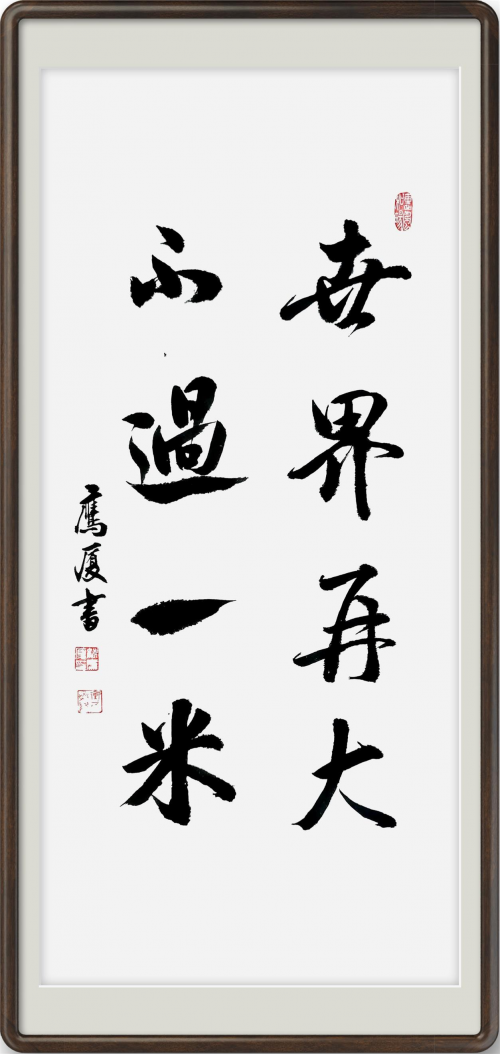 世界再大
不過一米
鹰厦書